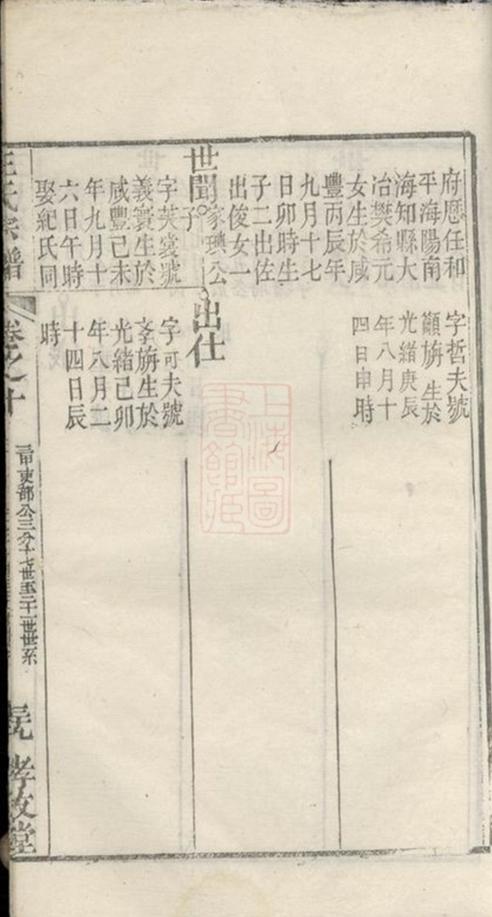 府歷任和
平海陽南
海知縣大
冶樊希元
女生於咸
豐丙辰年
九月十七
日卯時生
子二出佐
出俊女一
字哲夫號
顲旃生於
光緒庚辰
年八月十
四日申時
世聞 家璵公
子
字芙裳號
義寰生於
咸豐己未
年九月十
六日午時
娶紀氏同
出仕
字可夫號
荃旃生於
光緒己卯
年八月二
十四日辰
時
王氏宗譜
卷之十
吏部公三分十七世至二十一世世系
孝友堂
上海圖書館藏